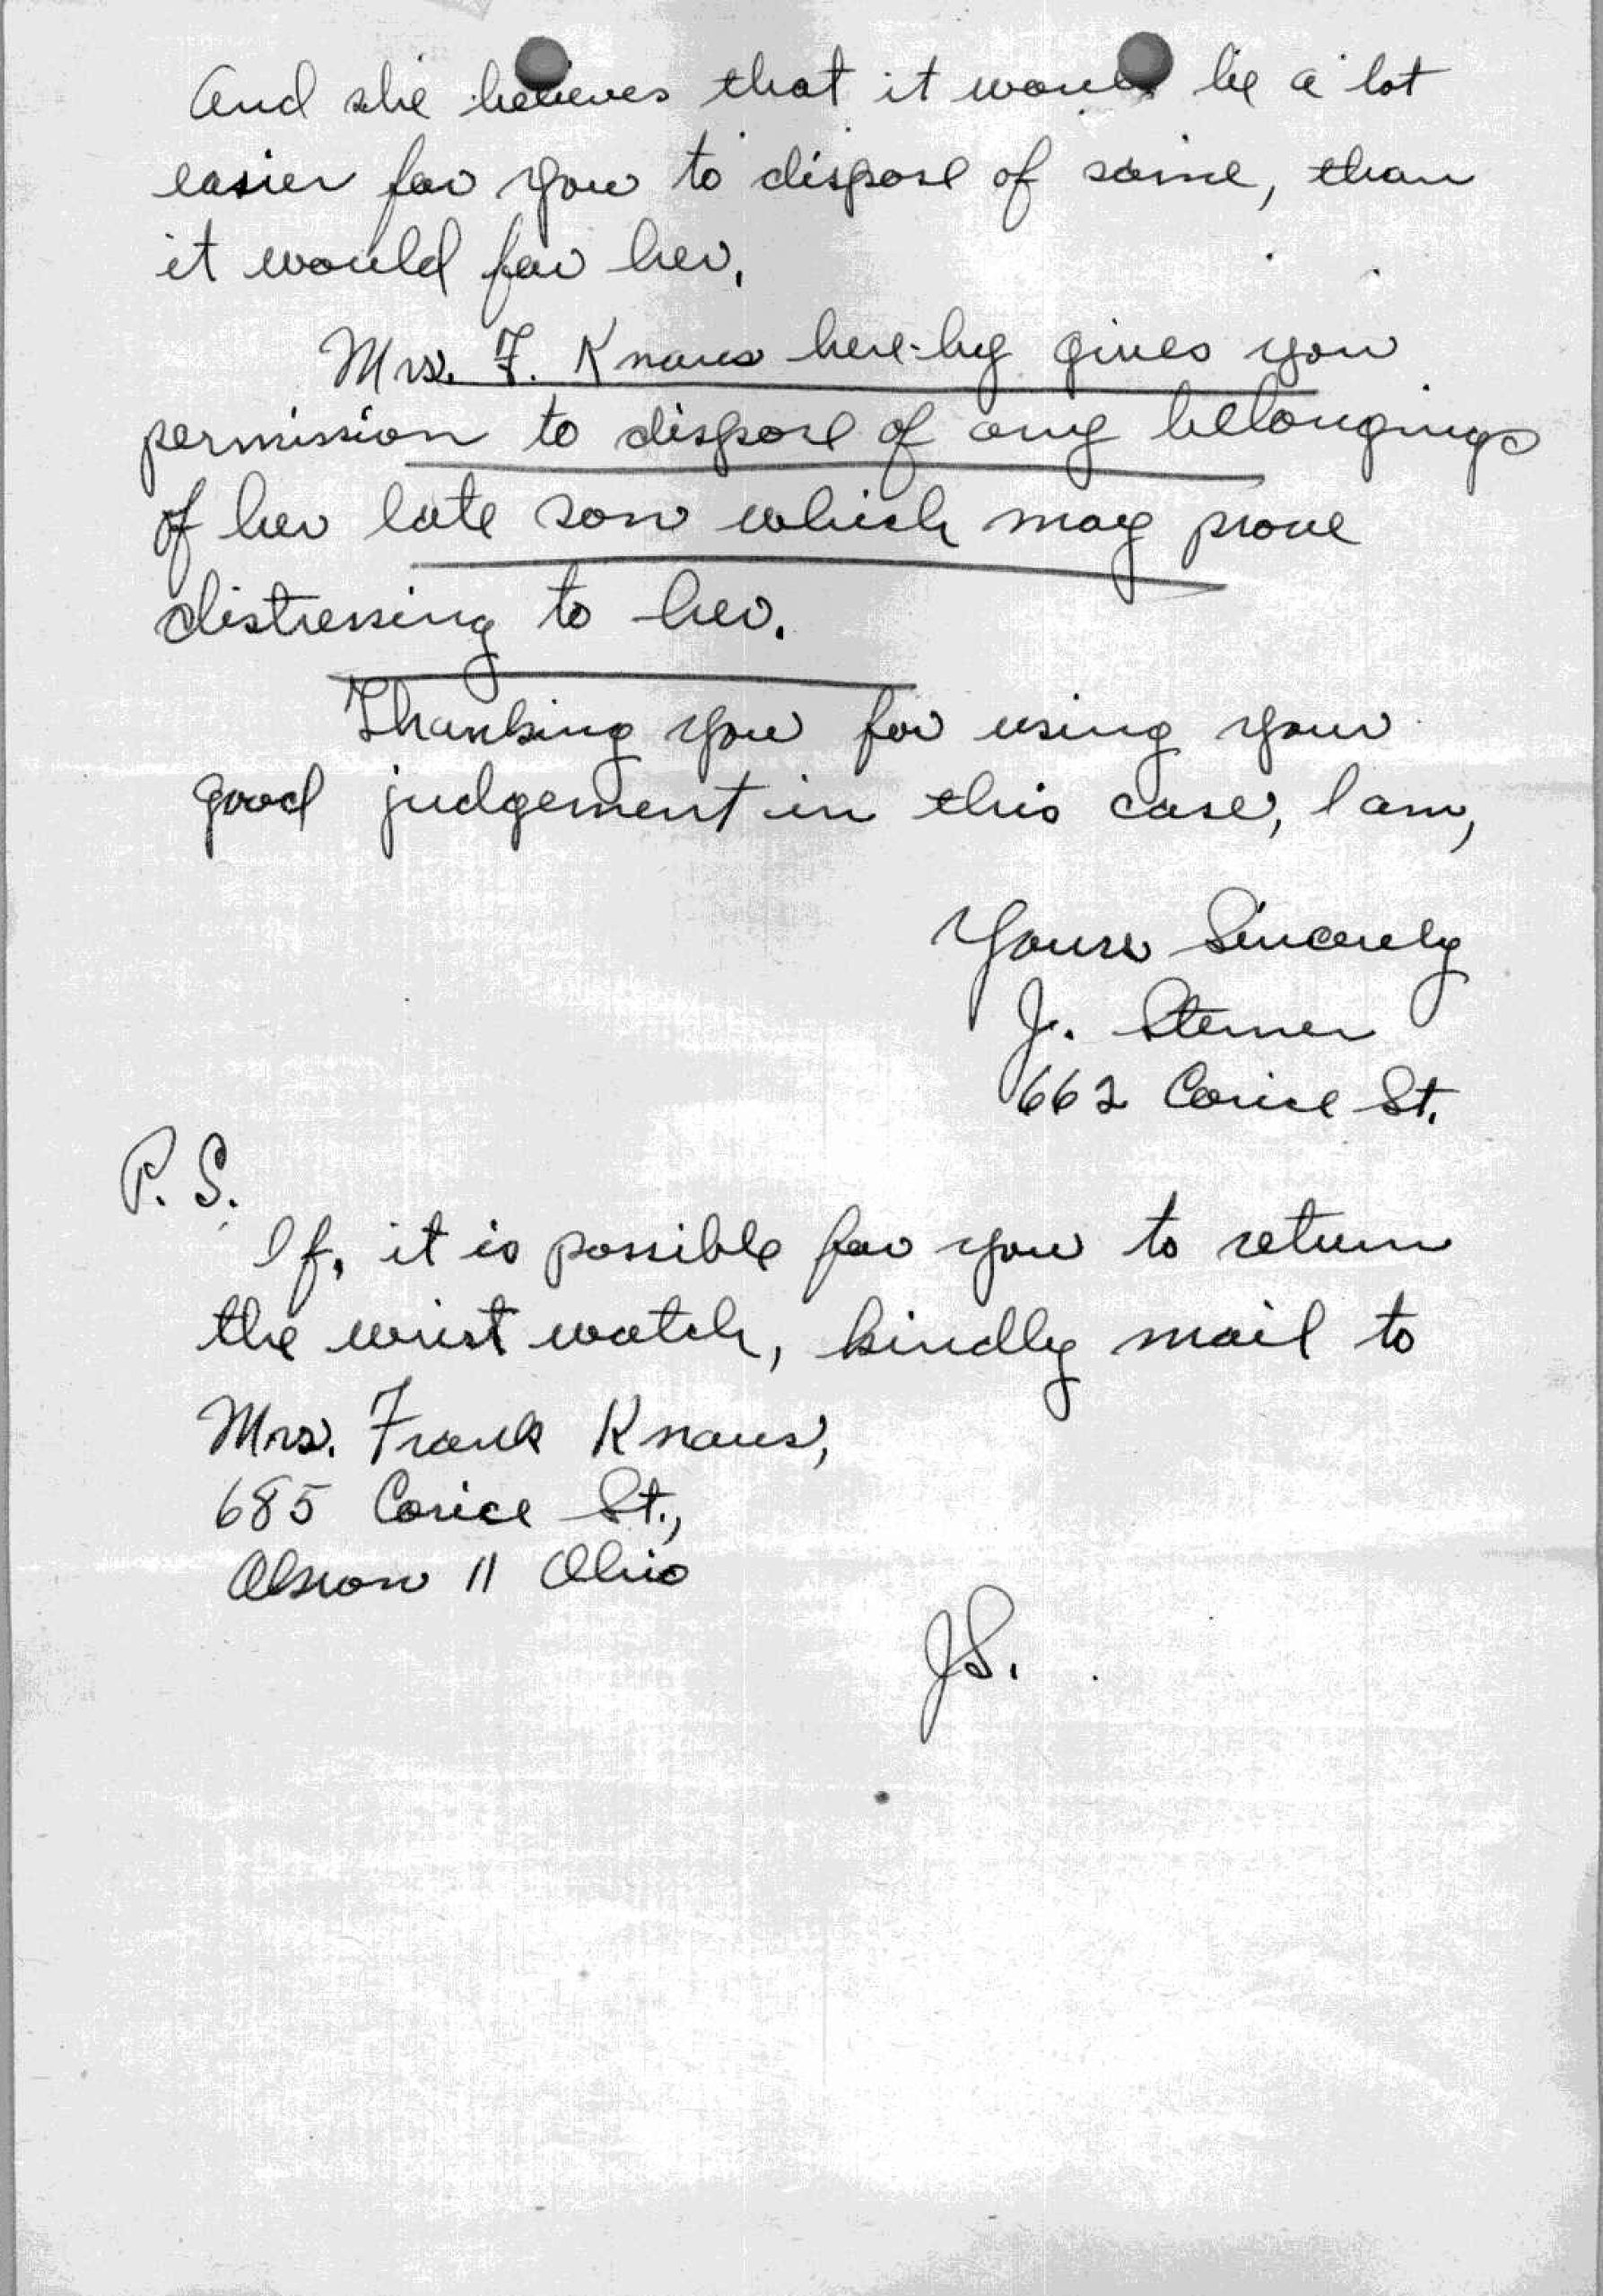 And she believes that it would be a lot
easier for you to dispose of same, than
it would for her.
Mrs. F. Knaus here-by gives you
permission to dispose of any belongings
of her late son which may prove
distressing to her.
Thanking you for using your
good judgement in this case, I am,
Yours Sincerely
J. Sterner
662 Corice St.
P. S.
If, it is possible for you to return
the wrist watch, kindly mail to
Mrs. Frank Knaus,
685 Corice St.,
Akron 11 Ohio
JS.